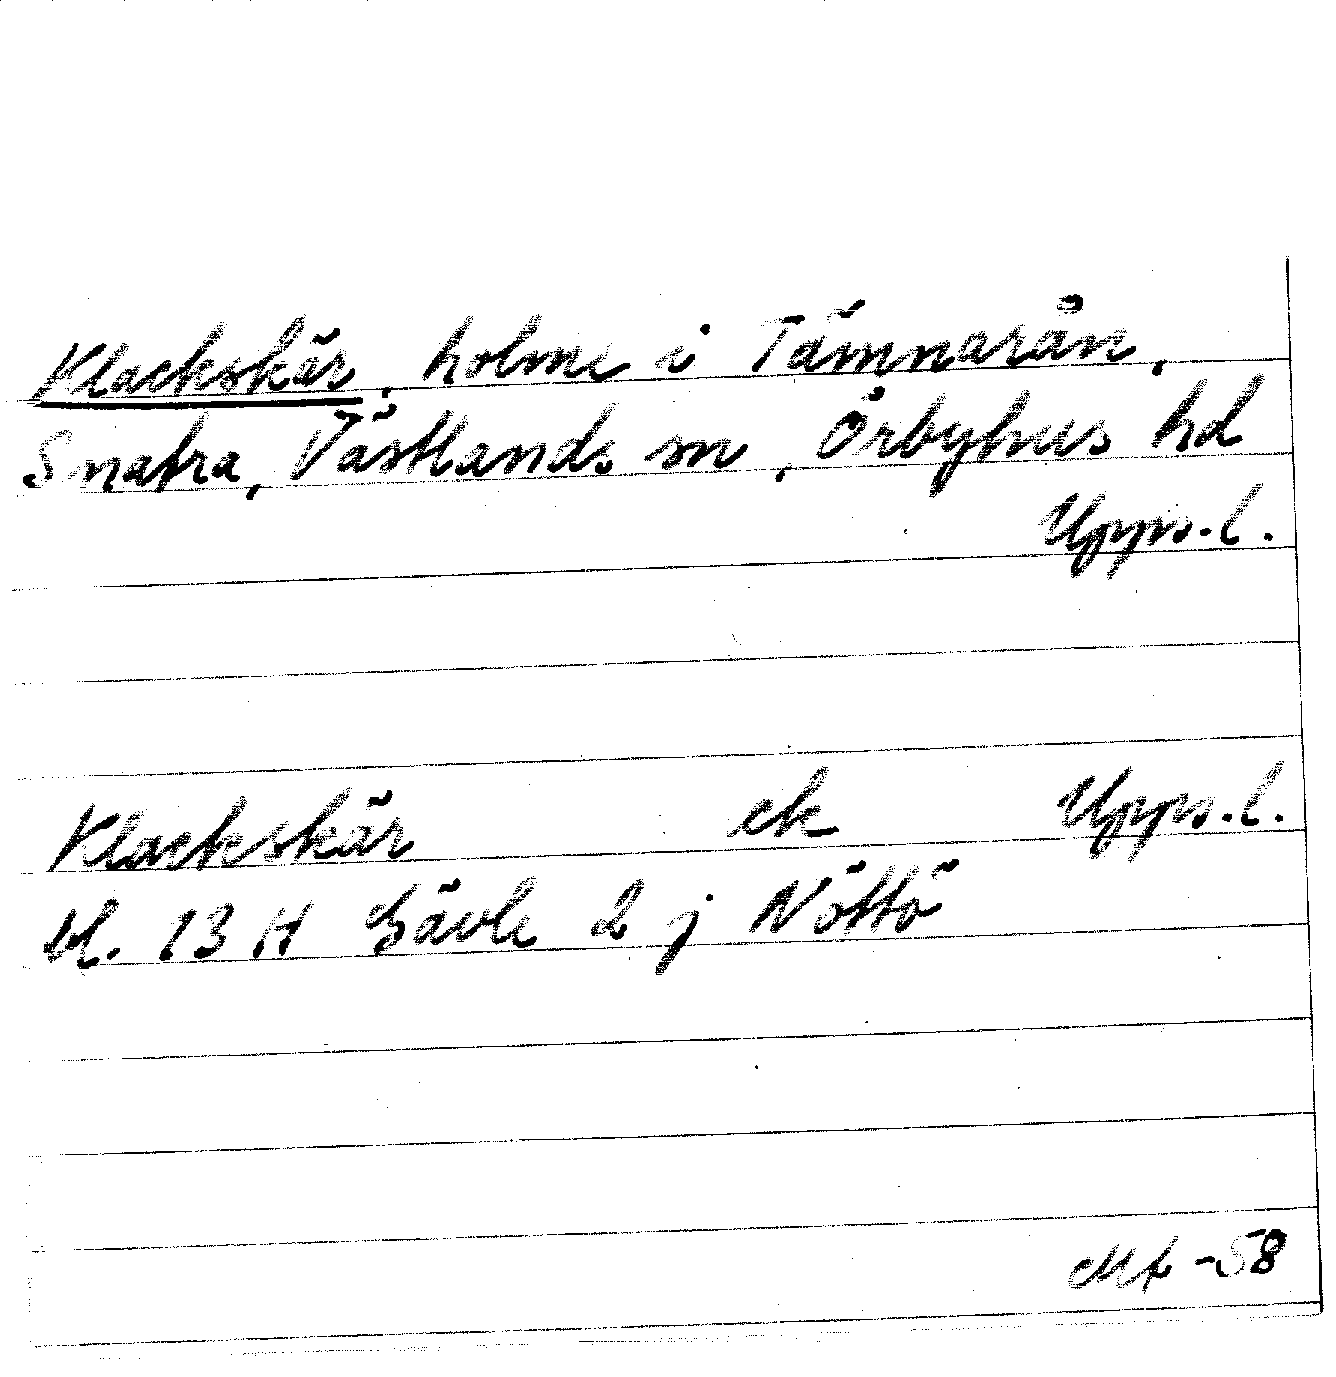 Klackskär, holme i Tämnarån,
Snatra, Västlands sn, Örbyhus hd
Upps.l.
Klackskär ek Upps.l.
bl. 13 H Gävle 2 j Nöttö
-58